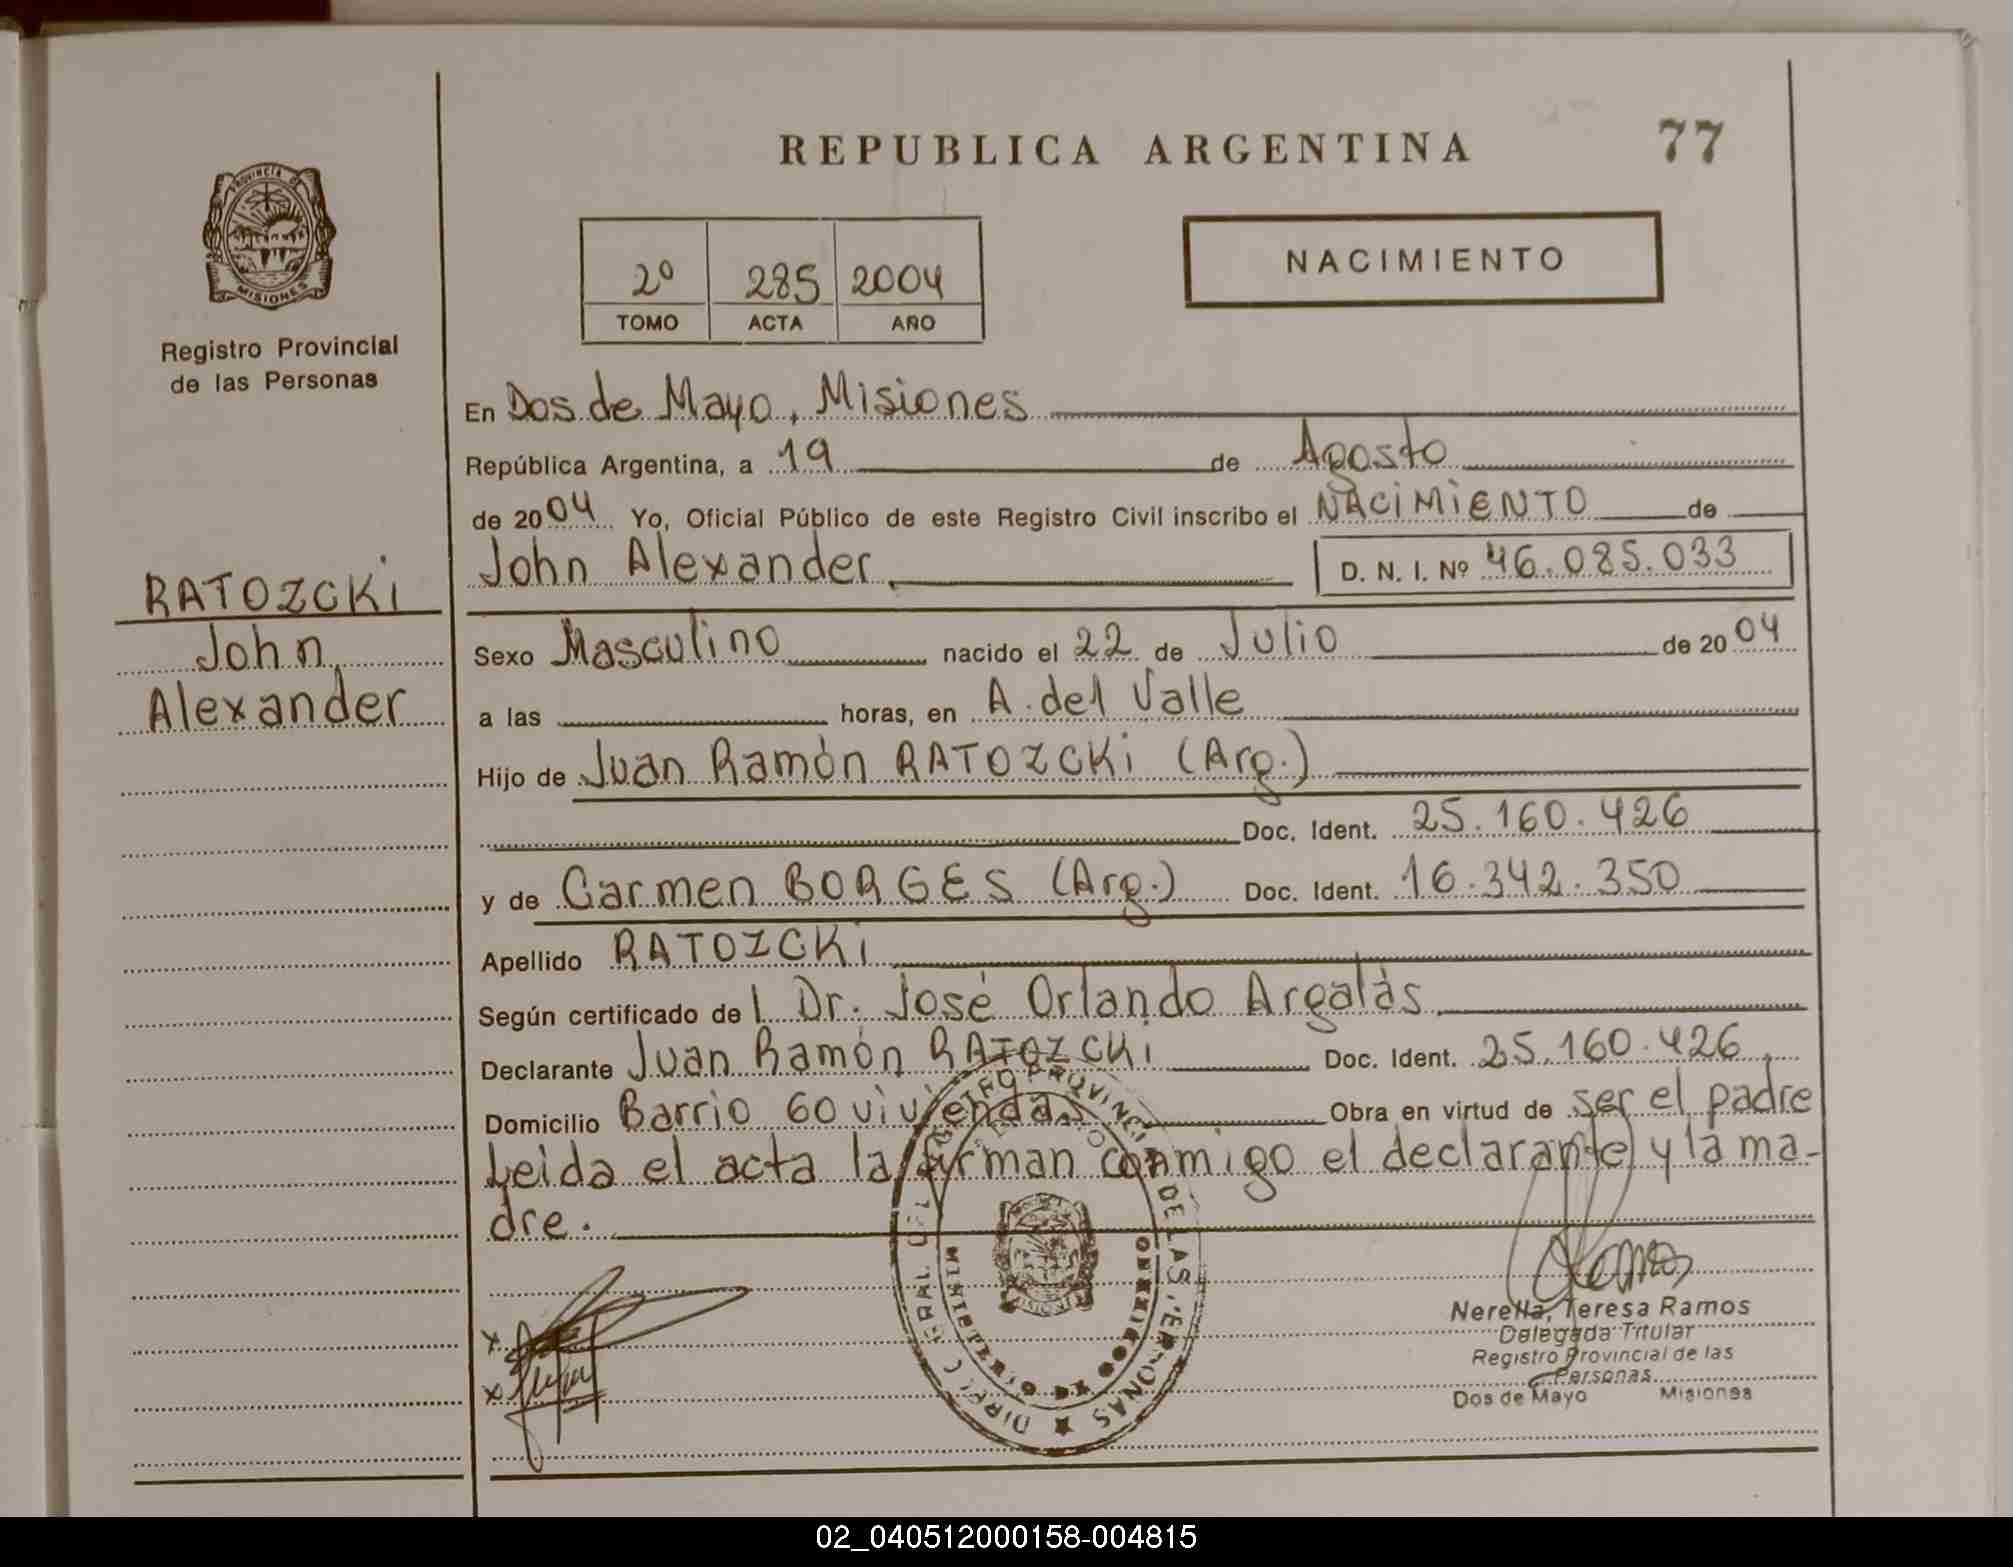 REPUBLICA ARGENTINA 77
PROVINCIA DE
MISIONES
Registro Provincial
de las Personas
2º 285 2004
TOMO ACTA AÑO
NACIMIENTO
En Dos de Mayo, Misiones
República Argentina, a 19 de Agosto
de 2004 Yo, Oficial Público de este Registro Civil inscribo el NACIMIENTO de
John Alexander D. N. I. Nº 46.085.033
RATOZCKI
John
Alexander
Sexo Masculino nacido el 22 de Julio de 2004
a las horas, en A. del Valle
Hijo de Juan Ramón RATOZCKI (Arg.)
Doc. Ident. 25.160.426
y de Carmen BORGES (Arg.) Doc. Ident. 16.342.350
Apellido RATOZCKI
Según certificado de l Dr. José Orlando Argalás
Declarante Juan Ramón RATOZCKI Doc. Ident. 25.160.426
Domicilio Barrio 60 viviendas Obra en virtud de ser el padre
Leida el acta la firman conmigo el declarante y la ma-
dre.
PROVINCIAL DE LAS PERSONAS
MINISTERIO DE GOBIERNO
Nerella, Teresa Ramos
Delegada Titular
Registro Provincial de las
Personas
Dos de Mayo Misiones
02_040512000158-004815